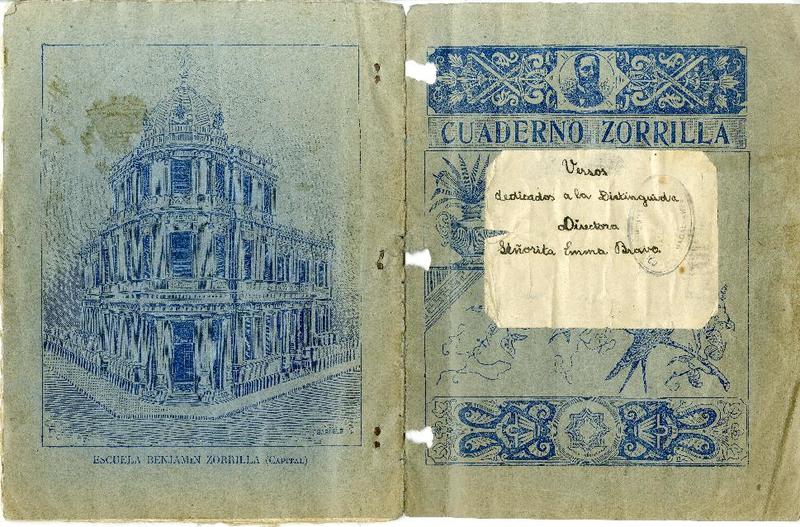 ESCUELA BENJAMIN ZORRILLA (CAPITAL)
CUADERNO ZORRILLA
Versos
dedicados a la Distinguida
Directora
Señorita Emma Bravo